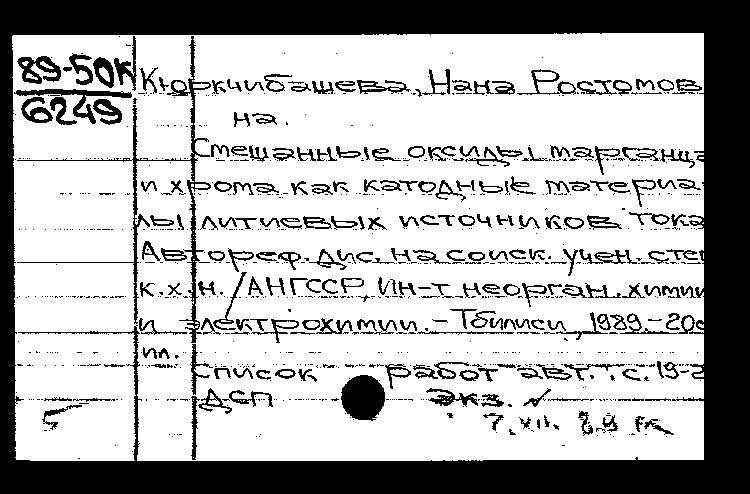 89-50к
6249
Кюркчибашева, Нана Ростомов
на.
Смешанные оксиды марганца
и хрома как катодные материа-
лы литиевых источников тока
Автореф. дис. на соиск. учен. степ
к.х.н. /АНГССР, Ин-т неорган. химии
и электрохимии. - Тбилиси, 1989. - 20с
ил.
Список работ авт.: с. 19-2
ДСП Экз. 
7.XII. 89
5